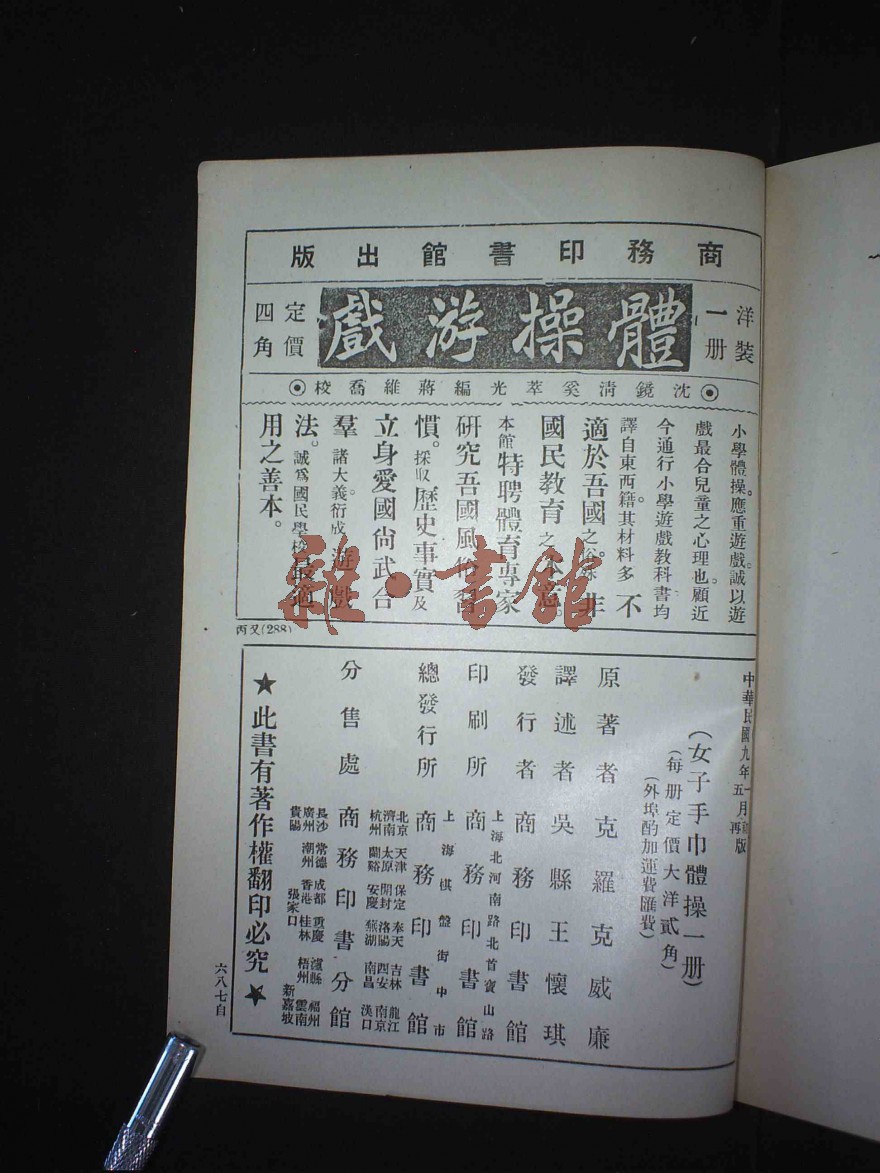 商務印書館出版
洋裝
一册
體操游戲
定價
四角
沈鏡清奚萃光編蔣維喬校
小學體操。應重遊戲。誠以遊
戲最合兒童之心理也。顧近
今通行小學遊戲教科書均
譯自東西籍其材料多不
適於吾國之俗。非
國民教育之本意。
本館特聘體育專家
研究吾國風俗習
慣。採取歷史事實及
立身愛國尚武合
羣諸大義衍成游戲
法。誠爲國民學校最適
用之善本。
丙又(288)
中華民國九年一月初版
五月再版
(女子手巾體操一册)
(每册定價大洋貳角)
(外埠酌加運費匯費)
原著者 克羅克威廉
譯述者 吳縣王懷琪
發行者 商務印書館
上海北河南路北首寶山路
印刷所 商務印書館
上海棋盤街中市
總發行所 商務印書館
北京 天津 保定 奉天 吉林 龍江
濟南 太原 開封 洛陽 西安 南京
杭州 蘭谿 安慶 蕪湖 南昌 漢口
分售處 商務印書分館
長沙 常德 成都 重慶 瀘縣 福州
廣州 潮州 香港 桂林 梧州 雲南
貴陽 張家口 新嘉坡
★此書有著作權翻印必究★
六八七自
雅·書館